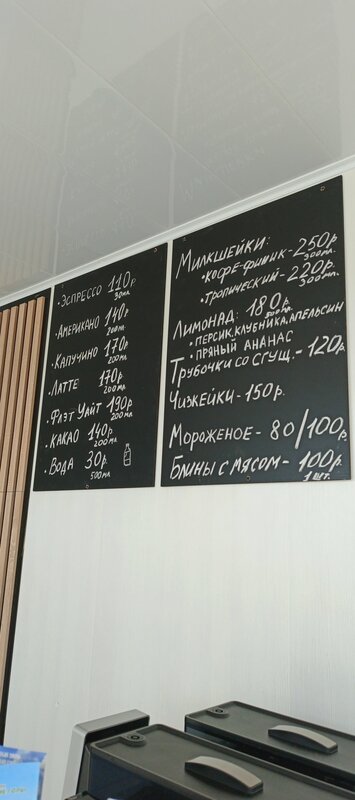 • Эспрессо 110р.
30мл
• Американо 140р.
200мл.
• Капучино 170р.
200мл.
• Латте 170р.
200мл.
• Флэт Уайт 190р.
200мл.
• Какао 140р.
200мл
• Вода 30р.
500мл
Милкшейки:
• кофе-финик - 250р.
300мл.
• тропический - 220р.
300мл.
Лимонад: 180р.
500мл.
• персик, клубника, апельсин
• пряный ананас
Трубочки со сгущ. - 120р.
Чизкейки - 150р.
Мороженое - 80/100р.
Блины с мясом - 100р.
1 шт.